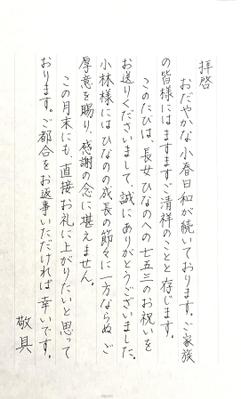 拝啓
おだやかな小春日和が続いております。ご家族
の皆様にはますますご清祥のことと存じます。
このたびは、長女ひなのへの七五三のお祝いを
お送りくださいまして、誠にありがとうございました。
小林様にはひなのの成長の節々に一方ならぬご
厚意を賜り、感謝の念に堪えません。
この月末にも、直接お礼に上がりたいと思って
おります。ご都合をお返事いただければ幸いです。
敬具